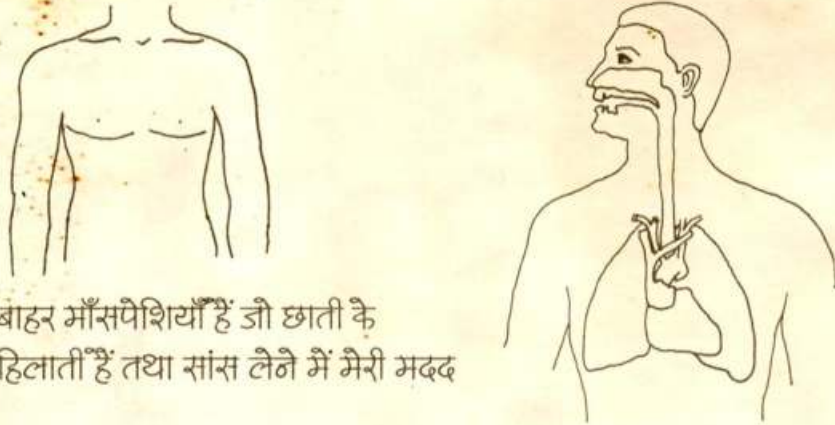 बाहर माँसपेशियाँ हैं जो छाती के
हिलातीं हैं तथा सांस लेने में मेरी मदद